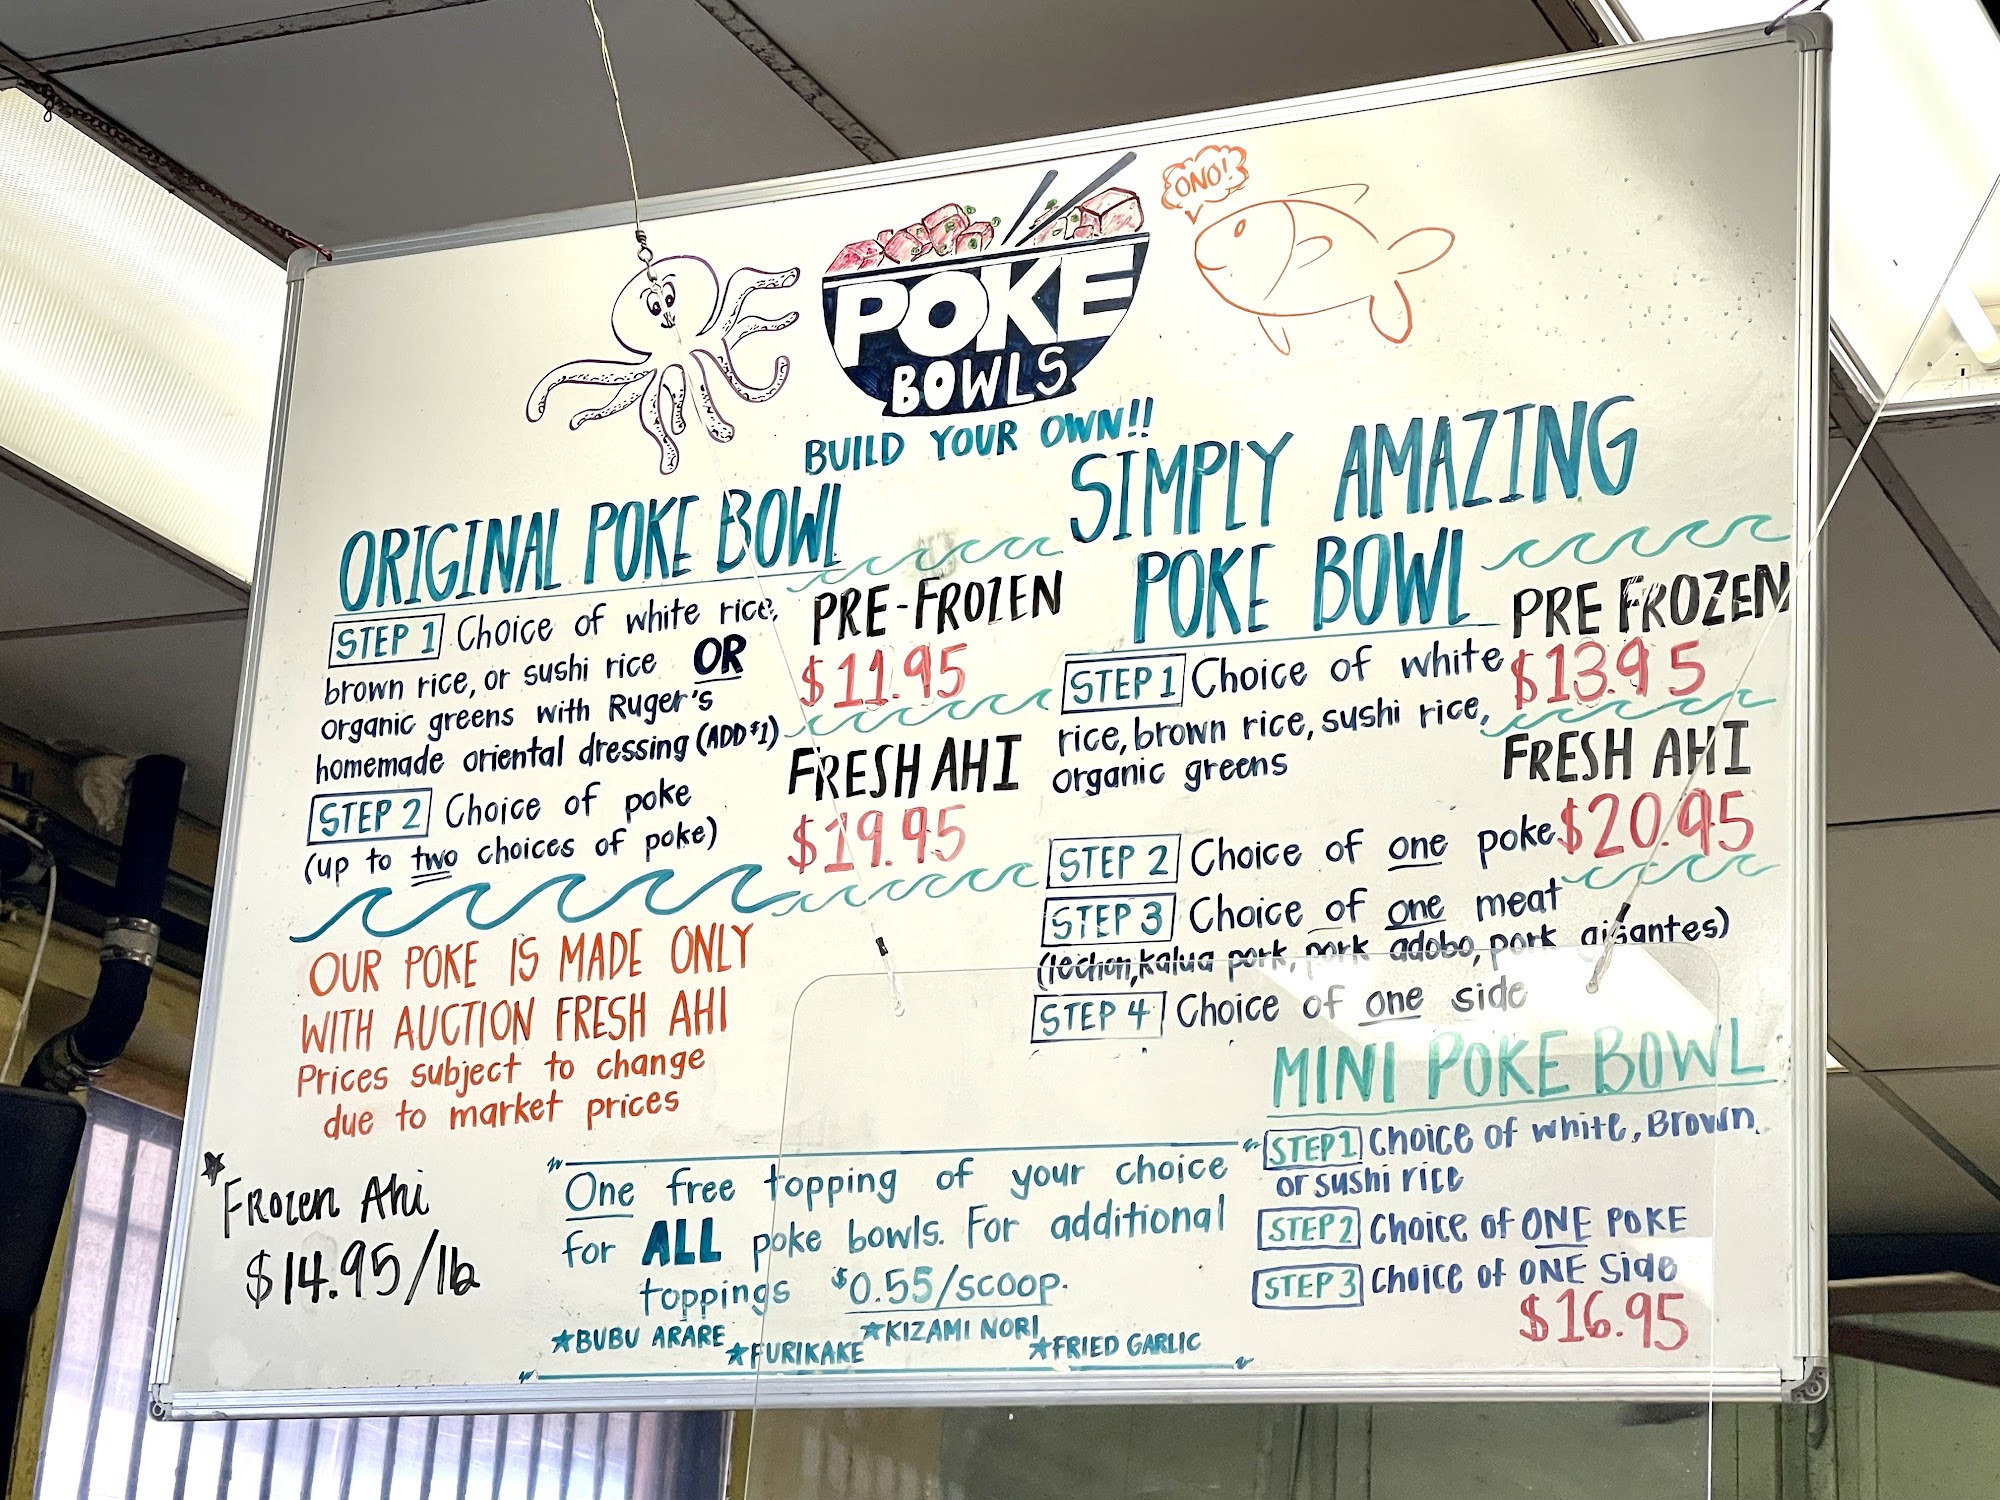 ONO!
POKE
BOWLS
BUILD YOUR OWN!!
ORIGINAL POKE BOWL
STEP 1 Choice of white rice,
brown rice, or sushi rice OR
organic greens with Ruger's
homemade oriental dressing (ADD $1)
STEP 2 Choice of poke
(up to two choices of poke)
PRE-FROZEN
$11.95
FRESH AHI
$19.95
SIMPLY AMAZING
POKE BOWL
STEP 1 Choice of white
rice, brown rice, sushi rice,
organic greens
STEP 2 Choice of one poke
STEP 3 Choice of one meat
(lechon, kalua pork, pork adobo, pork gisantes)
STEP 4 Choice of one side
PRE FROZEN
$13.95
FRESH AHI
$20.95
OUR POKE IS MADE ONLY
WITH AUCTION FRESH AHI
Prices subject to change
due to market prices
★Frozen Ahi
$14.95/lb
One free topping of your choice
for ALL poke bowls. For additional
toppings $0.55/scoop.
★BUBU ARARE ★FURIKAKE ★KIZAMI NORI ★FRIED GARLIC
MINI POKE BOWL
STEP 1 Choice of white, Brown,
or sushi rice
STEP 2 Choice of ONE POKE
STEP 3 Choice of ONE Side
$16.95